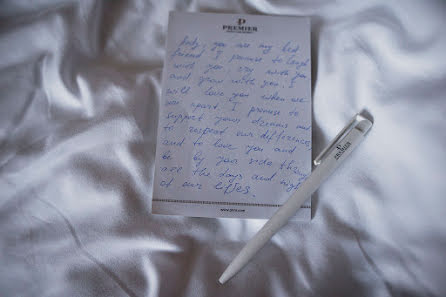 PREMIER
you are my best
friend. I promise to laugh
with you, cry with you
and grow with you. I
will love you when we
are apart. I promise to
support your dreams and
to respect our differences
and to love you and
be by your side through
all the days and nights
of our lifes.
PREMIER